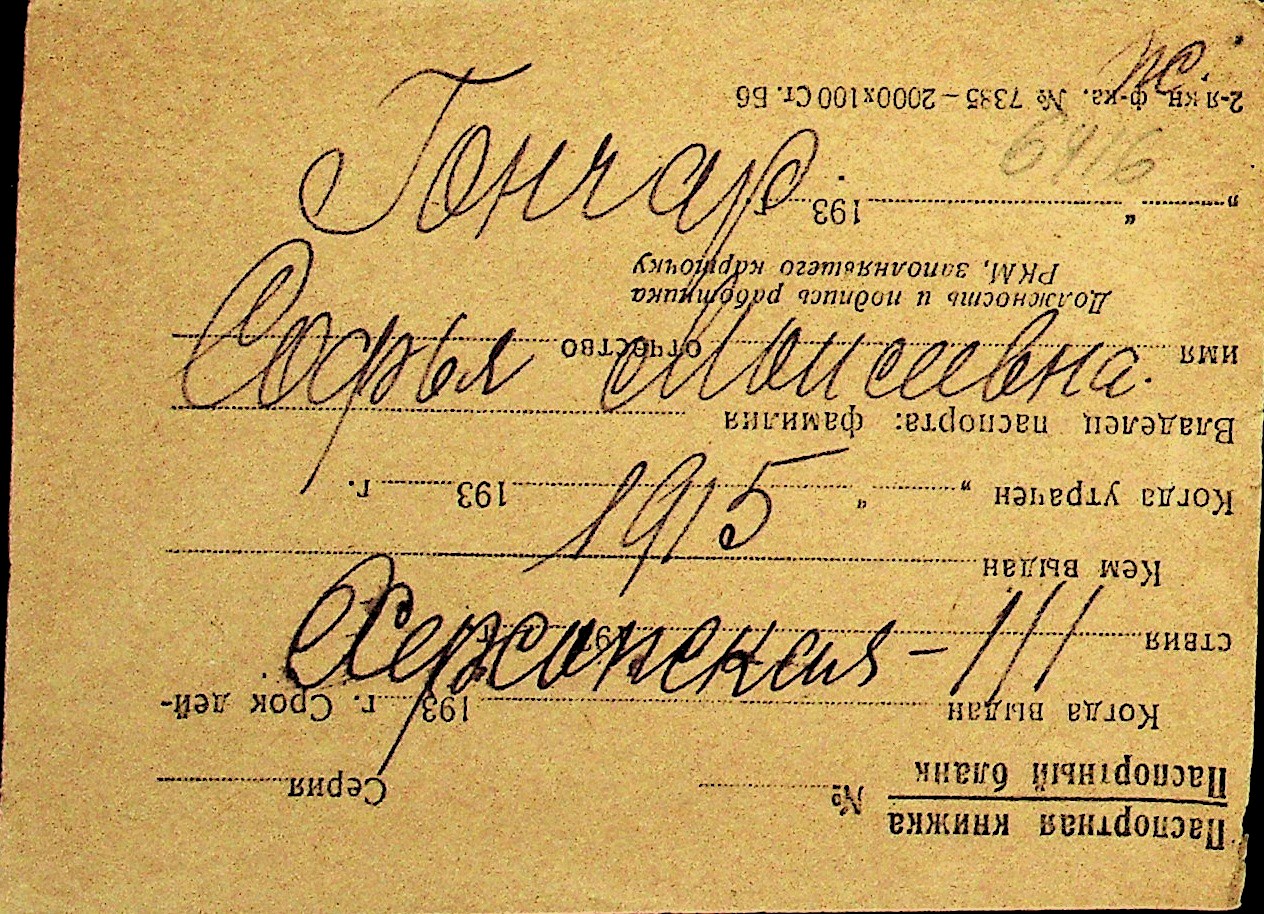 Гончар
Софья Моисеевна.
1915
Херсонская - 111
6416
Паспортная книжка
Паспортный бланк
№ Серия
Когда выдан 193 г. Срок дей-
ствия 193 г.
Кем выдан
Когда утрачен „ “ 193 г.
Владелец паспорта: фамилия
имя отчество
Должность и подпись работника
РКМ, заполнявшего карточку
„ “ 193 г.
2-я кн. ф-ка. № 7385 – 2000x100 Ст. Б6